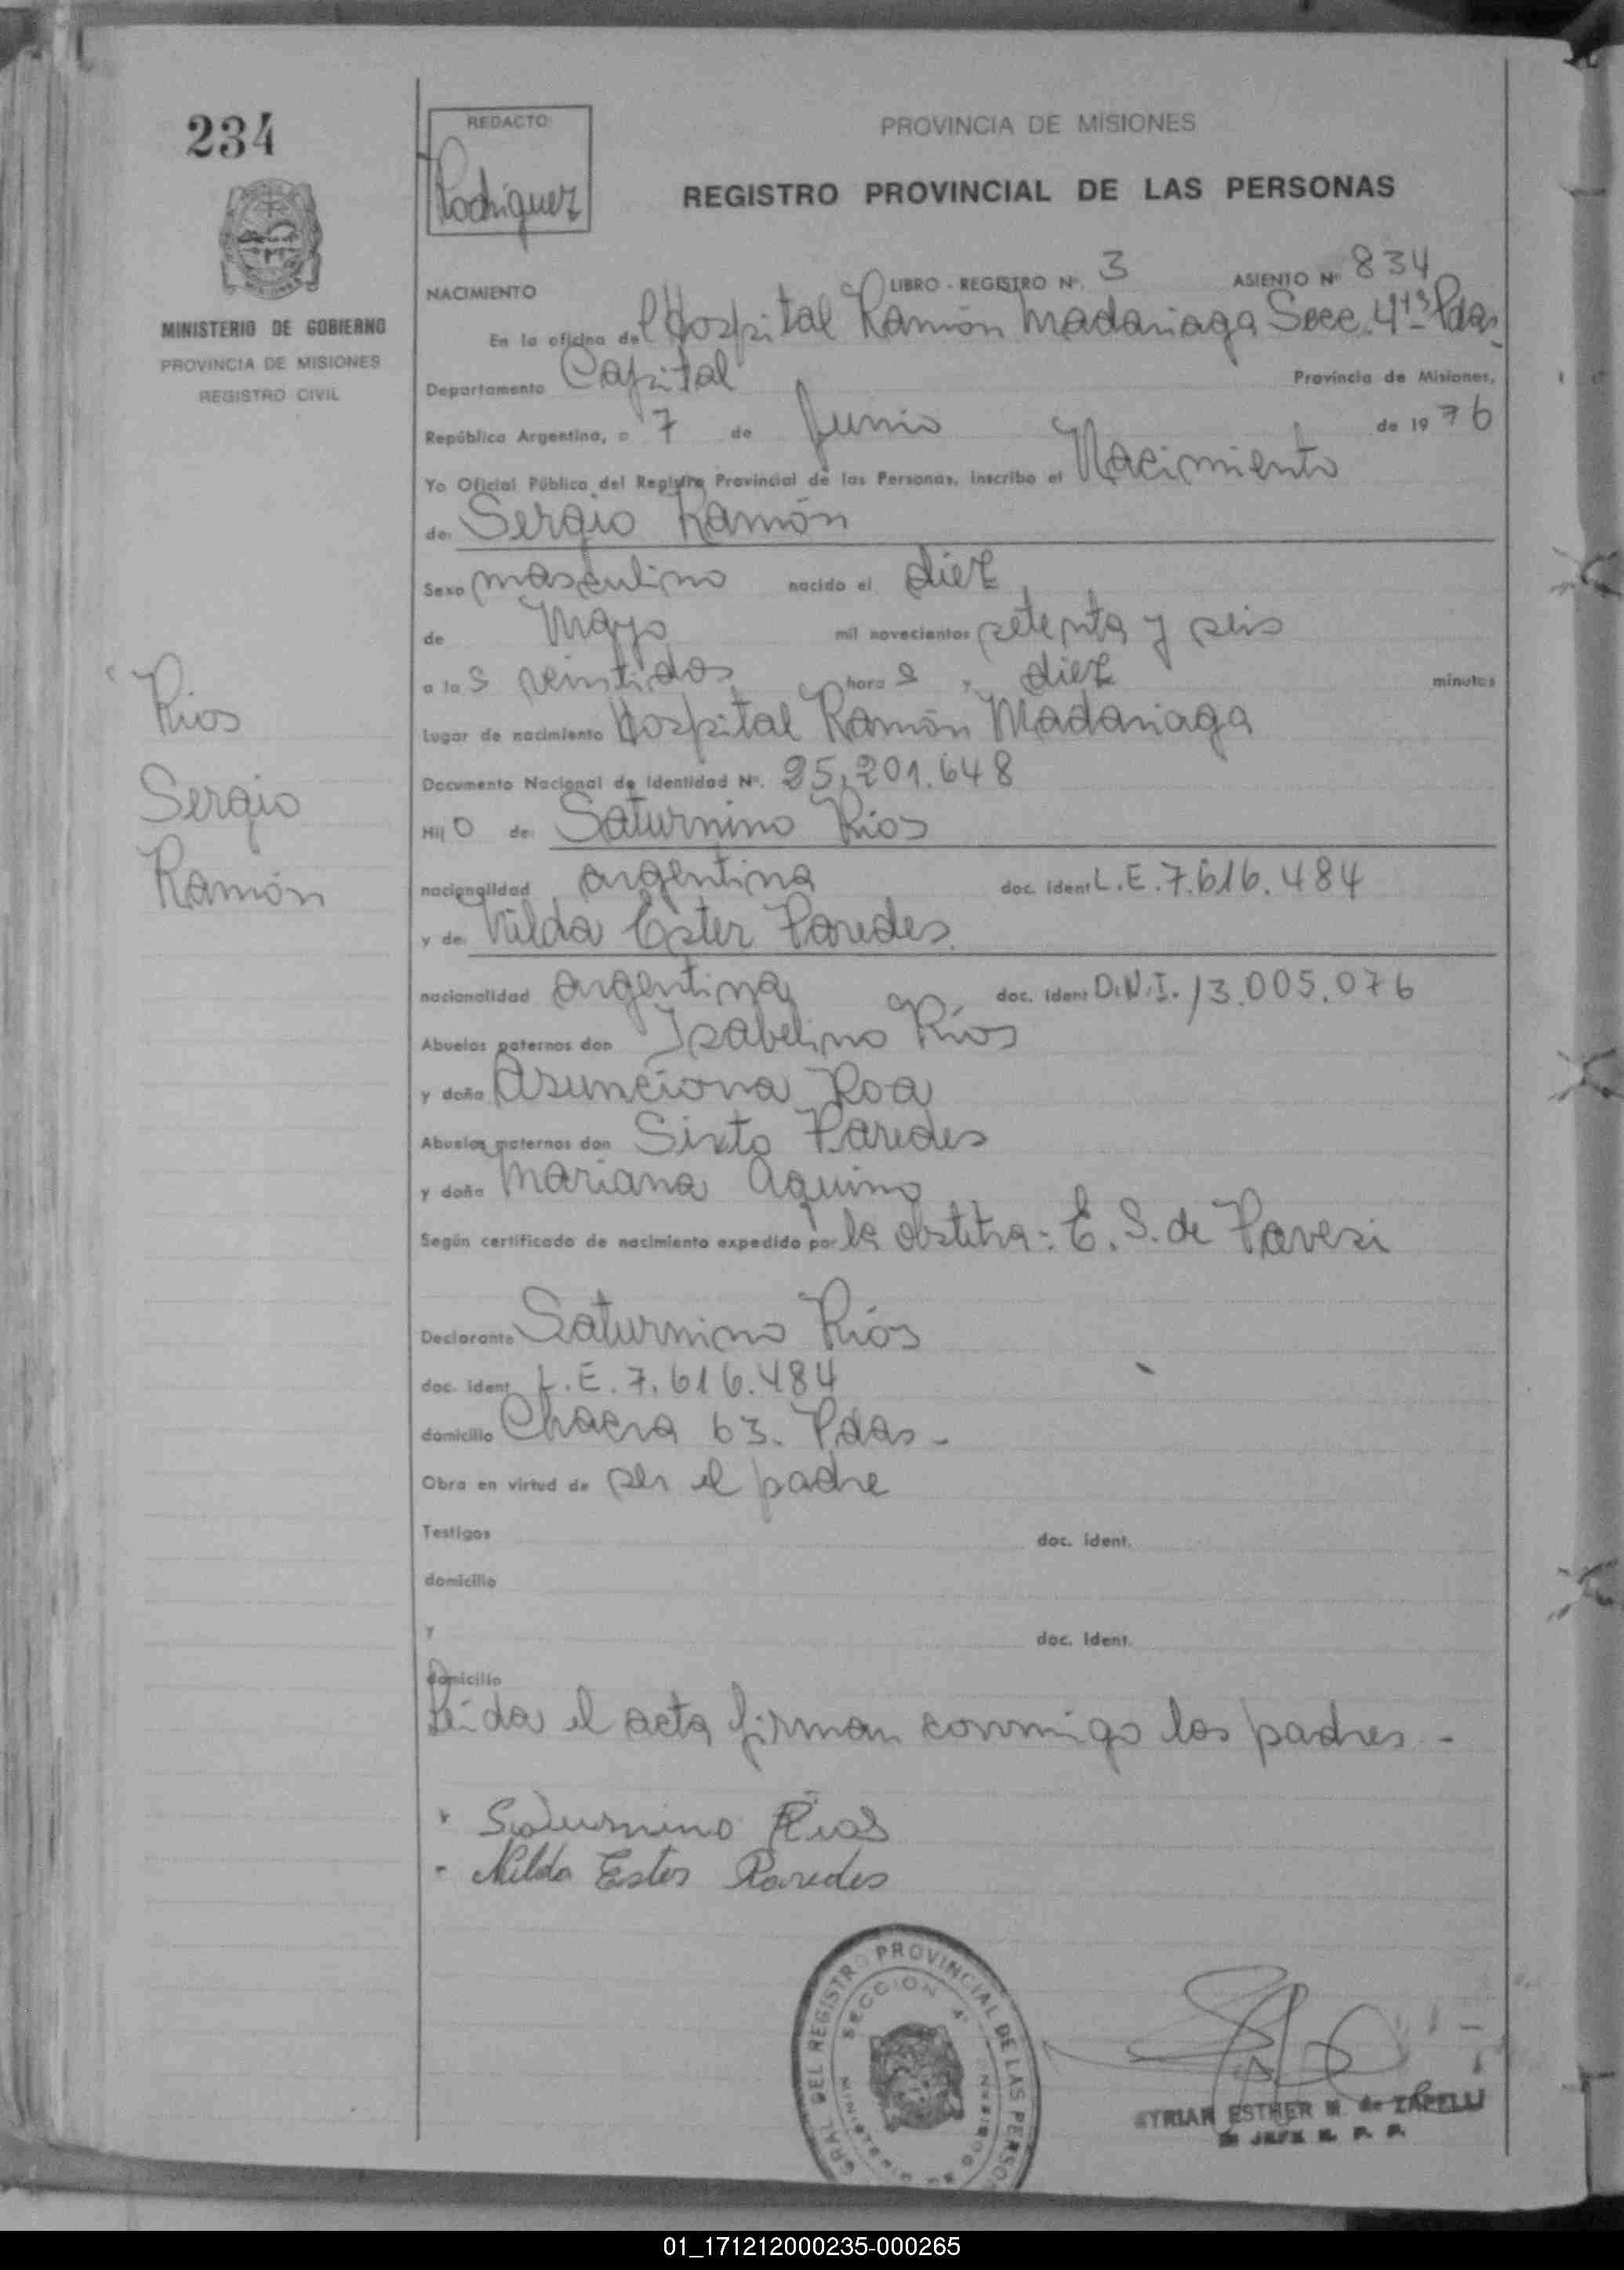 234
MINISTERIO DE GOBIERNO
PROVINCIA DE MISIONES
REGISTRO CIVIL
Rios
Sergio
Ramón
REDACTO
Rodriguez
PROVINCIA DE MISIONES
REGISTRO PROVINCIAL DE LAS PERSONAS
NACIMIENTO LIBRO - REGISTRO Nº. 3 ASIENTO Nº 834
En la oficina del Hospital Ramón Madariaga Secc. 4ta Pdas.
Departamento Capital Provincia de Misiones,
República Argentina, a 7 de Junio de 1976
Yo Oficial Público del Registro Provincial de las Personas, inscribo el Nacimiento
de: Sergio Ramón
Sexo masculino nacido el diez
de Mayo mil novecientos setenta y seis
a las veintidos horas y diez minutos
Lugar de nacimiento Hospital Ramón Madariaga
Documento Nacional de Identidad Nº. 25.201.648
Hijo de: Saturnino Rios
nacionalidad argentina doc. ident L.E. 7.616.484
y de: Nilda Ester Paredes.
nacionalidad argentina doc. ident D.N.I. 13.005.076
Abuelos paternos don Isabelino Ríos
y doña Asunciona Roa
Abuelos maternos don Sixto Paredes
y doña Mariana Aquino
Según certificado de nacimiento expedido por la obstetra: E. S. de Pavesi
Declarante Saturnino Ríos
doc. ident L.E. 7.616.484
domicilio Chacra 63. Pdas -
Obra en virtud de ser el padre
Testigos doc. ident.
domicilio
Y doc. ident.
domicilio
Leida el acta firman conmigo los padres -
Saturnino Rios
- Nilda Ester Paredes
GRAL DEL REGISTRO PROVINCIAL DE LAS PERSO
SECCION 4ª
MINISTERIO DE GOBIERNO
MYRIAN ESTHER M. de ZAPELLI
JEFE R. P. P.
01_171212000235-000265